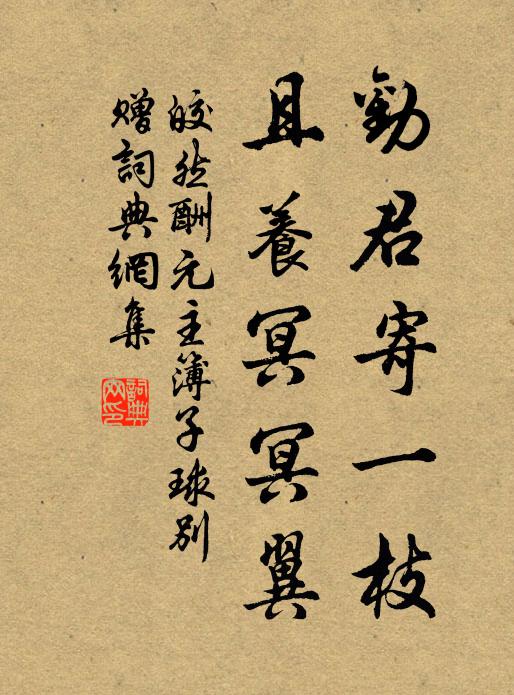 勸君寄一枝
且養冥冥翼
皎然酬元主簿子球別
贈詞典網集
詞典網印